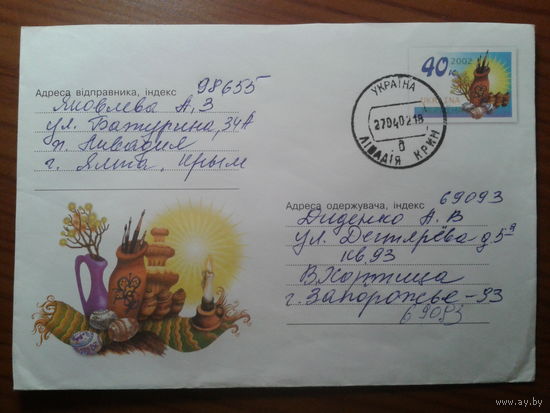 Адреса відправника, індекс 98655
Яковлевы А, З
ул. Батурина, 34А
п. Ливадия
г. Ялта, Крым
40 к
2002
UKRAINA
УКРАЇНА
270402 18
б
ЛІВАДІЯ КРИМ
Адреса одержувача, індекс 69093
Диденко А. В
ул. Дегтярёва д 5а
кв, 93
В. Хортица
г. Запорожье-93
69093
https://www.ay.by/